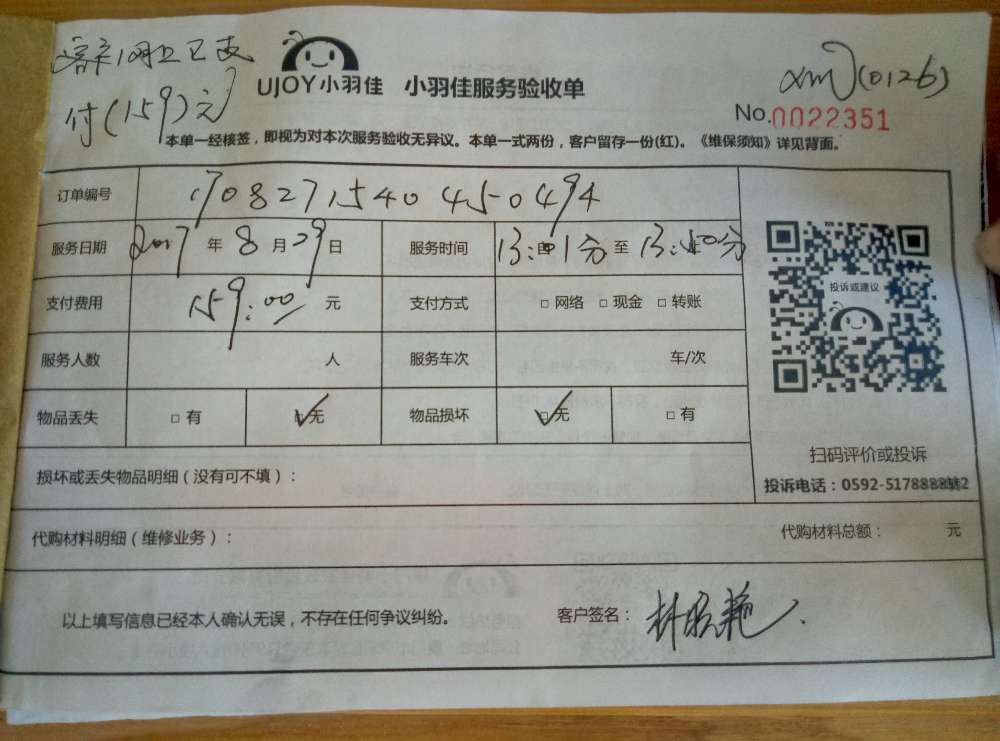 客户网上已支
付(159)元
UJOY小羽佳 小羽佳服务验收单
xm (0126)
No.0022351
本单一经核签，即视为对本次服务验收无异议。本单一式两份，客户留存一份(红)。《维保须知》详见背面。
订单编号 1708271540450494
服务日期 2017 年 8 月 29 日 服务时间 13:01分 至 13:50分
支付费用 159.00 元 支付方式 □ 网络 □ 现金 □ 转账
投诉或建议
服务人数 人 服务车次 车/次
物品丢失 □ 有 ☑ 无 物品损坏 ☑ 无 □ 有
扫码评价或投诉
损坏或丢失物品明细（没有可不填）：
投诉电话：0592-5178888
代购材料明细（维修业务）： 代购材料总额： 元
以上填写信息已经本人确认无误，不存在任何争议纠纷。 客户签名：林